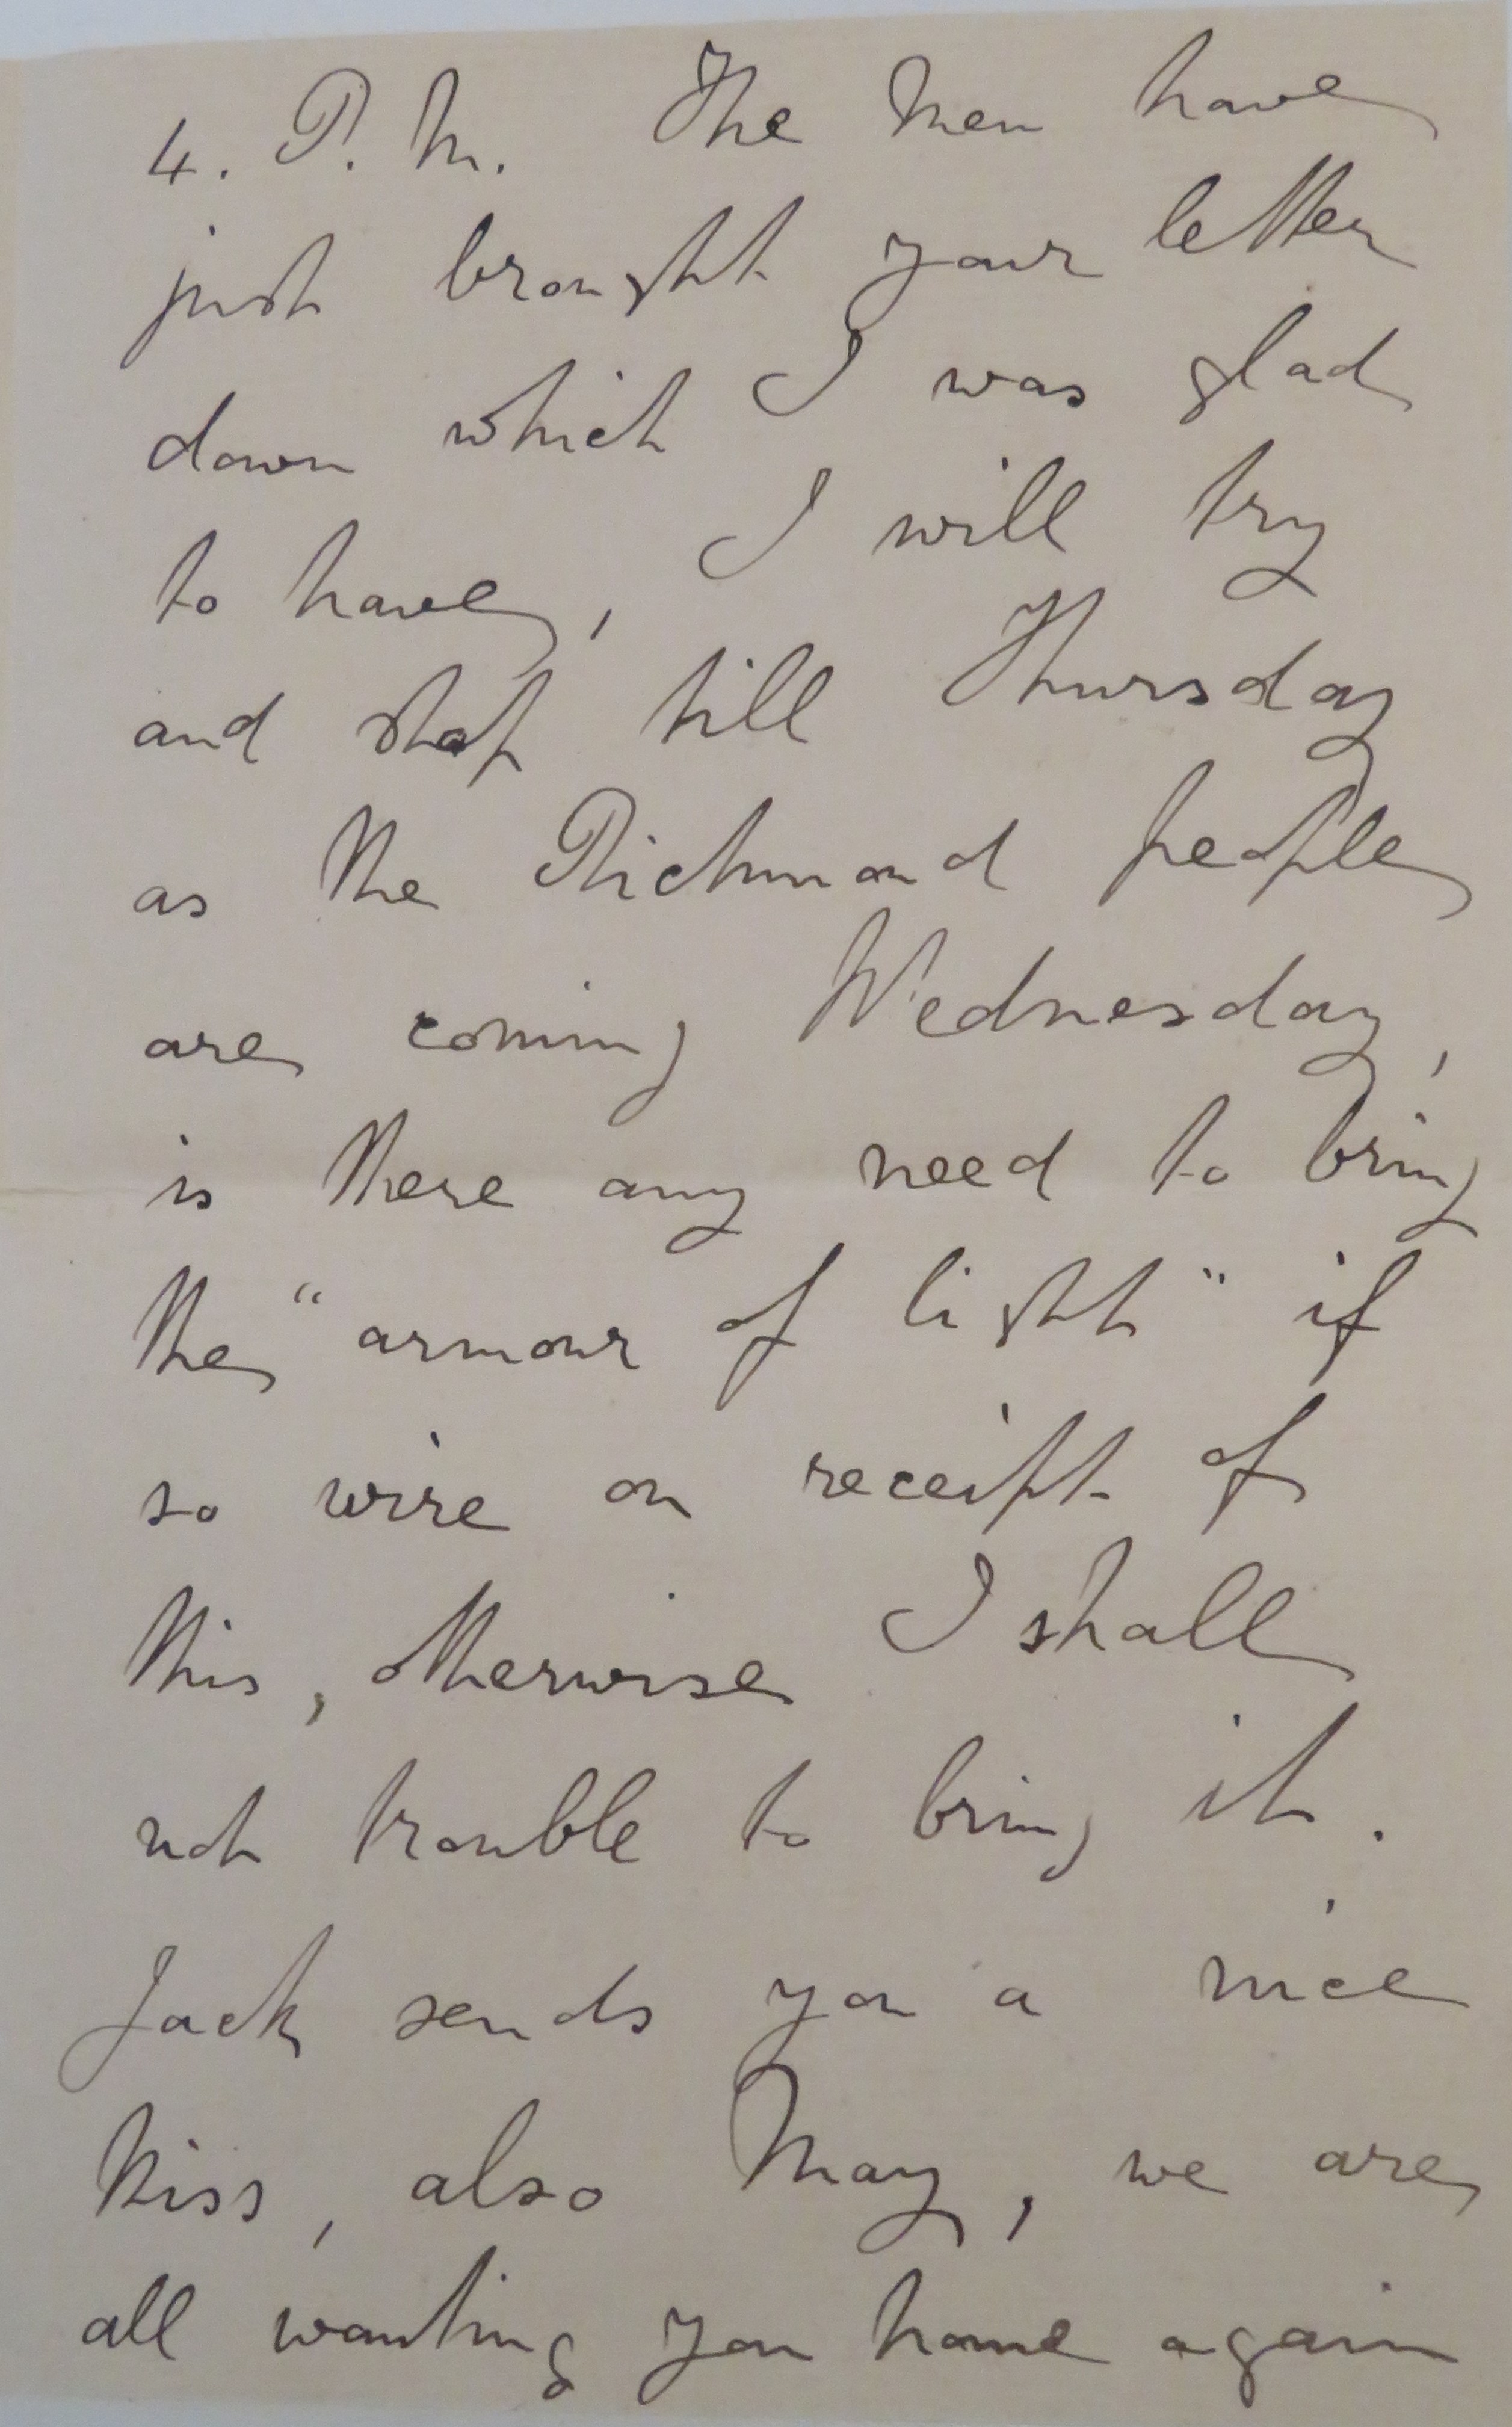 4. P. M. The Men have
just brought your letter
down which I was glad
to have, I will try
and stop till Thursday
as the Richmond people
are coming Wednesday,
is there any need to bring
the "armour of light" if
so wire on receipt of
this, otherwise I shall
not trouble to bring it.
Jack sends you a nice
kiss, also May, we are
all wanting you home again